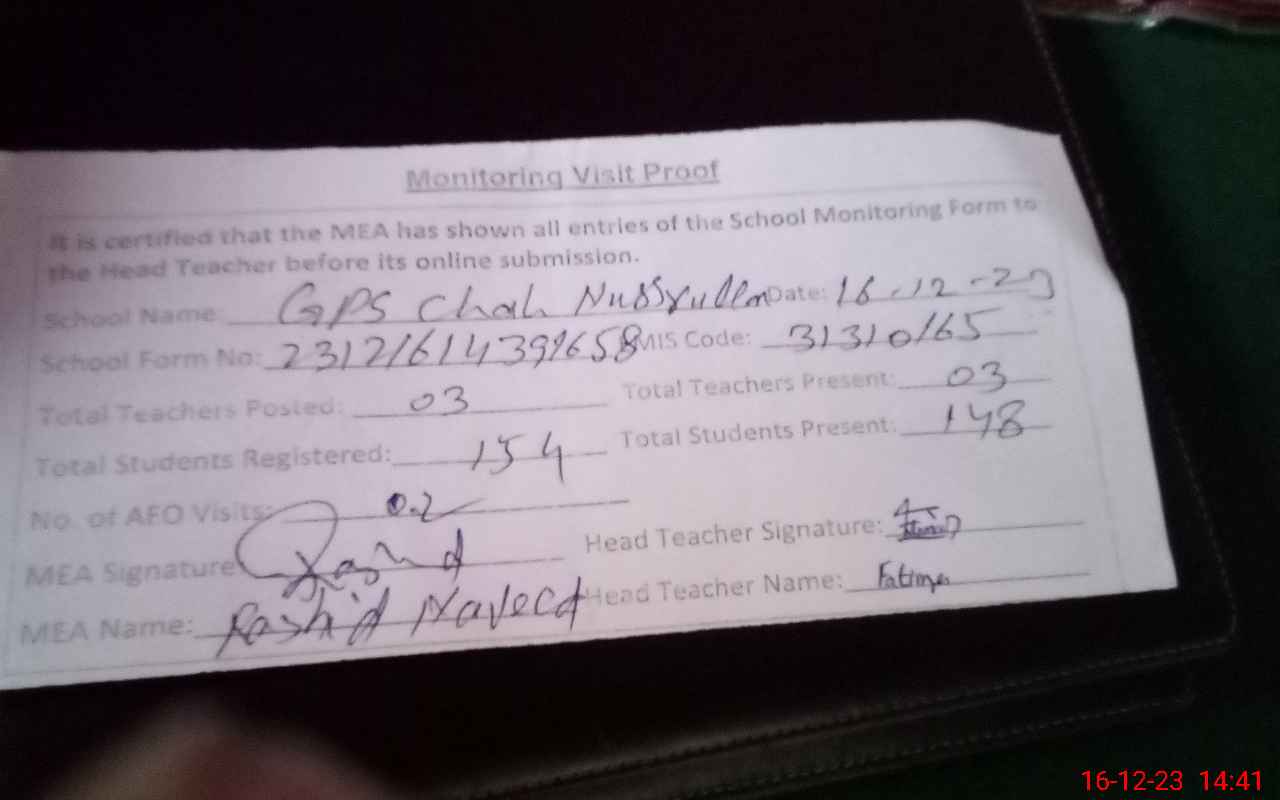 Monitoring Visit Proof
It is certified that the MEA has shown all entries of the School Monitoring Form to
the Head Teacher before its online submission.
School Name: GPS Chah Date: 16-12-23
School Form No: 23121614391658 MIS Code: 31310165
Total Teachers Posted: 03 Total Teachers Present: 03
Total Students Registered: 154 Total Students Present: 148
No. of AEO Visits: 02
MEA Signature Rashid Head Teacher Signature:
MEA Name: Rashid Naveed Head Teacher Name: Fatima
16-12-23 14:41